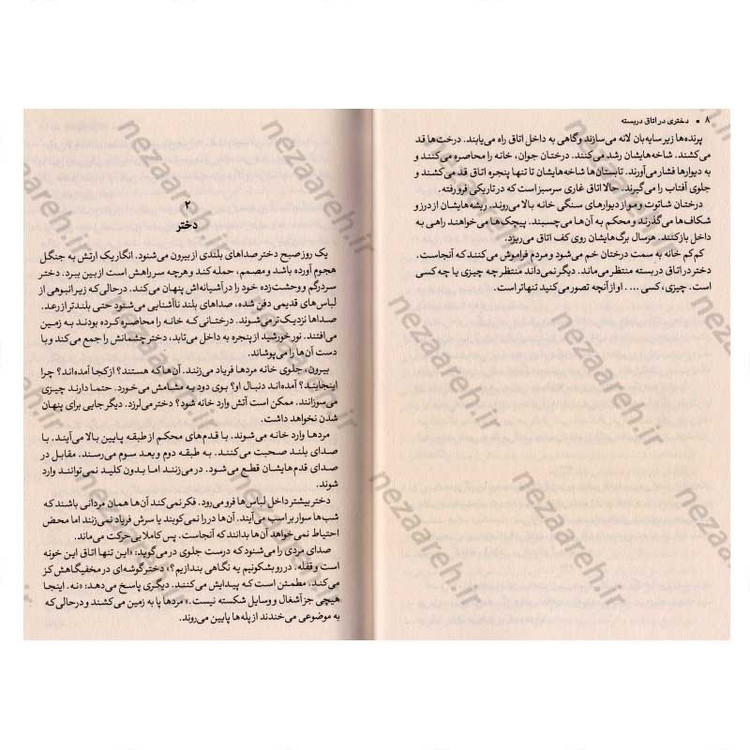 ۸ ▪ دختری در اتاق دربسته
پرنده‌ها زیر سایه‌بان لانه می‌سازند و گاهی به داخل اتاق راه می‌یابند. درخت‌ها قد
می‌کشند. شاخه‌هایشان رشد می‌کنند. درختان جوان، خانه را محاصره می‌کنند و
به دیوارها فشار می‌آورند. تابستان‌ها شاخه‌هایشان تا تنها پنجره اتاق قد می‌کشند و
جلوی آفتاب را می‌گیرند. حالا اتاق غاری سرسبز است که در تاریکی فرو رفته.
درختان شاتوت و مو از دیوارهای سنگی خانه بالا می‌روند. ریشه‌هایشان از درز و
شکاف‌ها می‌گذرند و محکم به آن‌ها می‌چسبند. پیچک‌ها می‌خواهند راهی به
داخل باز کنند. هر سال برگ‌هایشان روی کف اتاق می‌ریزد.
کم کم خانه به سمت درختان خم می‌شود و مردم فراموش می‌کنند که آنجاست.
دختر در اتاق دربسته منتظر می‌ماند. دیگر نمی‌داند منتظر چه چیزی یا چه کسی
است. چیزی، کسی .... او از آنچه تصور می‌کنید تنهاتر است.
۲
دختر
یک روز صبح دختر صداهای بلندی از بیرون می‌شنود. انگار یک ارتش به جنگل
هجوم آورده باشد و مصمم، حمله کند و هرچه سر راهش است از بین ببرد. دختر
سردرگم و وحشت‌زده خود را در آشیانه‌اش پنهان می‌کند. درحالی‌که زیر انبوهی از
لباس‌های قدیمی دفن شده، صداهای بلند ناآشنایی می‌شنود حتی بلندتر از رعد.
صداها نزدیک‌تر می‌شوند. درختانی که خانه را محاصره کرده بودند به زمین
می‌افتند. نور خورشید از پنجره به داخل می‌تابد، دختر چشمانش را جمع می‌کند و با
دست آن‌ها را می‌پوشاند.
بیرون، جلوی خانه مردها فریاد می‌زنند. آن‌ها که هستند؟ از کجا آمده‌اند؟ چرا
اینجایند؟ آمده‌اند دنبال او؟ بوی دود به مشامش می‌خورد. حتما دارند چیزی
می‌سوزانند. ممکن است آتش وارد خانه شود؟ دختر می‌لرزد. دیگر جایی برای پنهان
شدن نخواهد داشت.
مردها وارد خانه می‌شوند. با قدم‌های محکم از طبقه پایین بالا می‌آیند. با
صدای بلند صحبت می‌کنند. به طبقه دوم و بعد سوم می‌رسند. مقابل در
صدای قدم‌هایشان قطع می‌شود. در می‌زنند اما بدون کلید نمی‌توانند وارد
شوند.
دختر بیشتر داخل لباس‌ها فرو می‌رود. فکر نمی‌کند آن‌ها همان مردانی باشند که
شب‌ها سوار بر اسب می‌آیند. آن‌ها در را نمی‌کوبند یا سرش فریاد نمی‌زنند اما محض
احتیاط نمی‌خواهد آن‌ها بدانند که آنجاست. پس کاملا بی‌حرکت می‌ماند.
صدای مردی را می‌شنود که درست جلوی در می‌گوید: «این تنها اتاق این خونه
است و قفله. در رو بشکونیم یه نگاهی بندازیم؟» دختر گوشه‌ای در مخفیگاهش کز
می‌کند. مطمئن است که پیدایش می‌کنند. دیگری پاسخ می‌دهد: «نه. اینجا
هیچی جز آشغال و وسایل شکسته نیست.» مردها پا به زمین می‌کشند و درحالی‌که
به موضوعی می‌خندند از پله‌ها پایین می‌روند.
nezaareh.ir
nezaareh.ir
nezaareh.ir
nezaareh.ir
nezaareh.ir
nezaareh.ir
nezaareh.ir
nezaareh.ir
nezaareh.ir
nezaareh.ir
nezaareh.ir